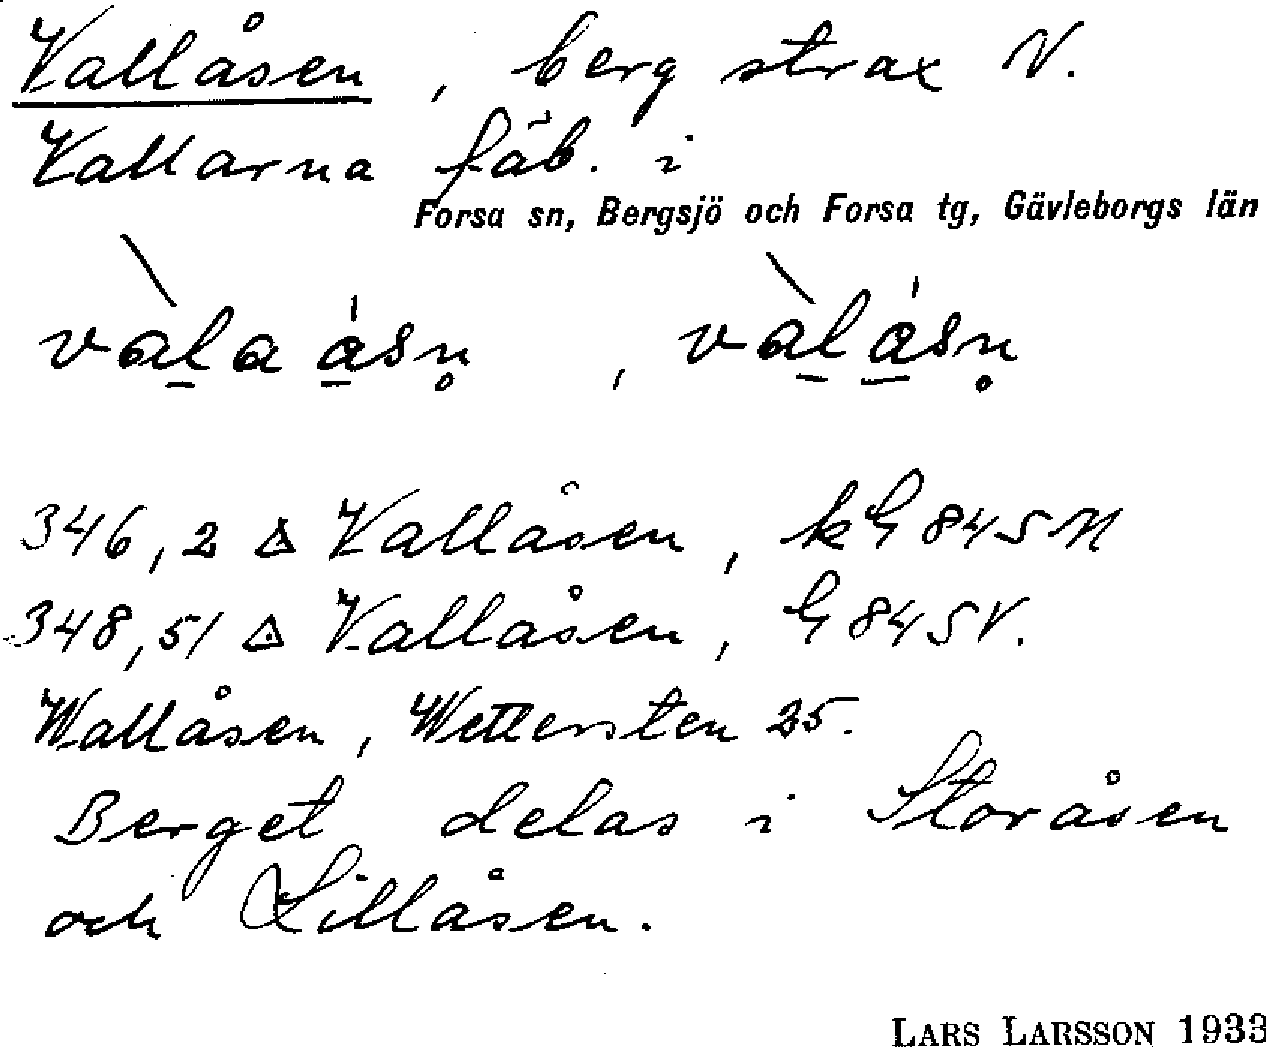 Vallåsen, berg strax V.
Vallarna fäb. i
Forsa sn, Bergsjö och Forsa tg, Gävleborgs län
vàla åsn̥, vàlåsn̥
346,2 △ Vallåsen, kG 845 N
348,51 △ Vallåsen, G 845 V.
Wallåsen, Wettersten 25.
Berget delas i Storåsen
och Lillåsen.
LARS LARSSON 1933